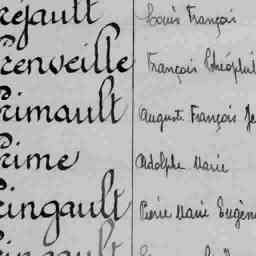 réjault Louis François
renveille François Théophil
rimault Auguste François Je
rime Adolphe Marie
ringault Pierre Marie Eugèn